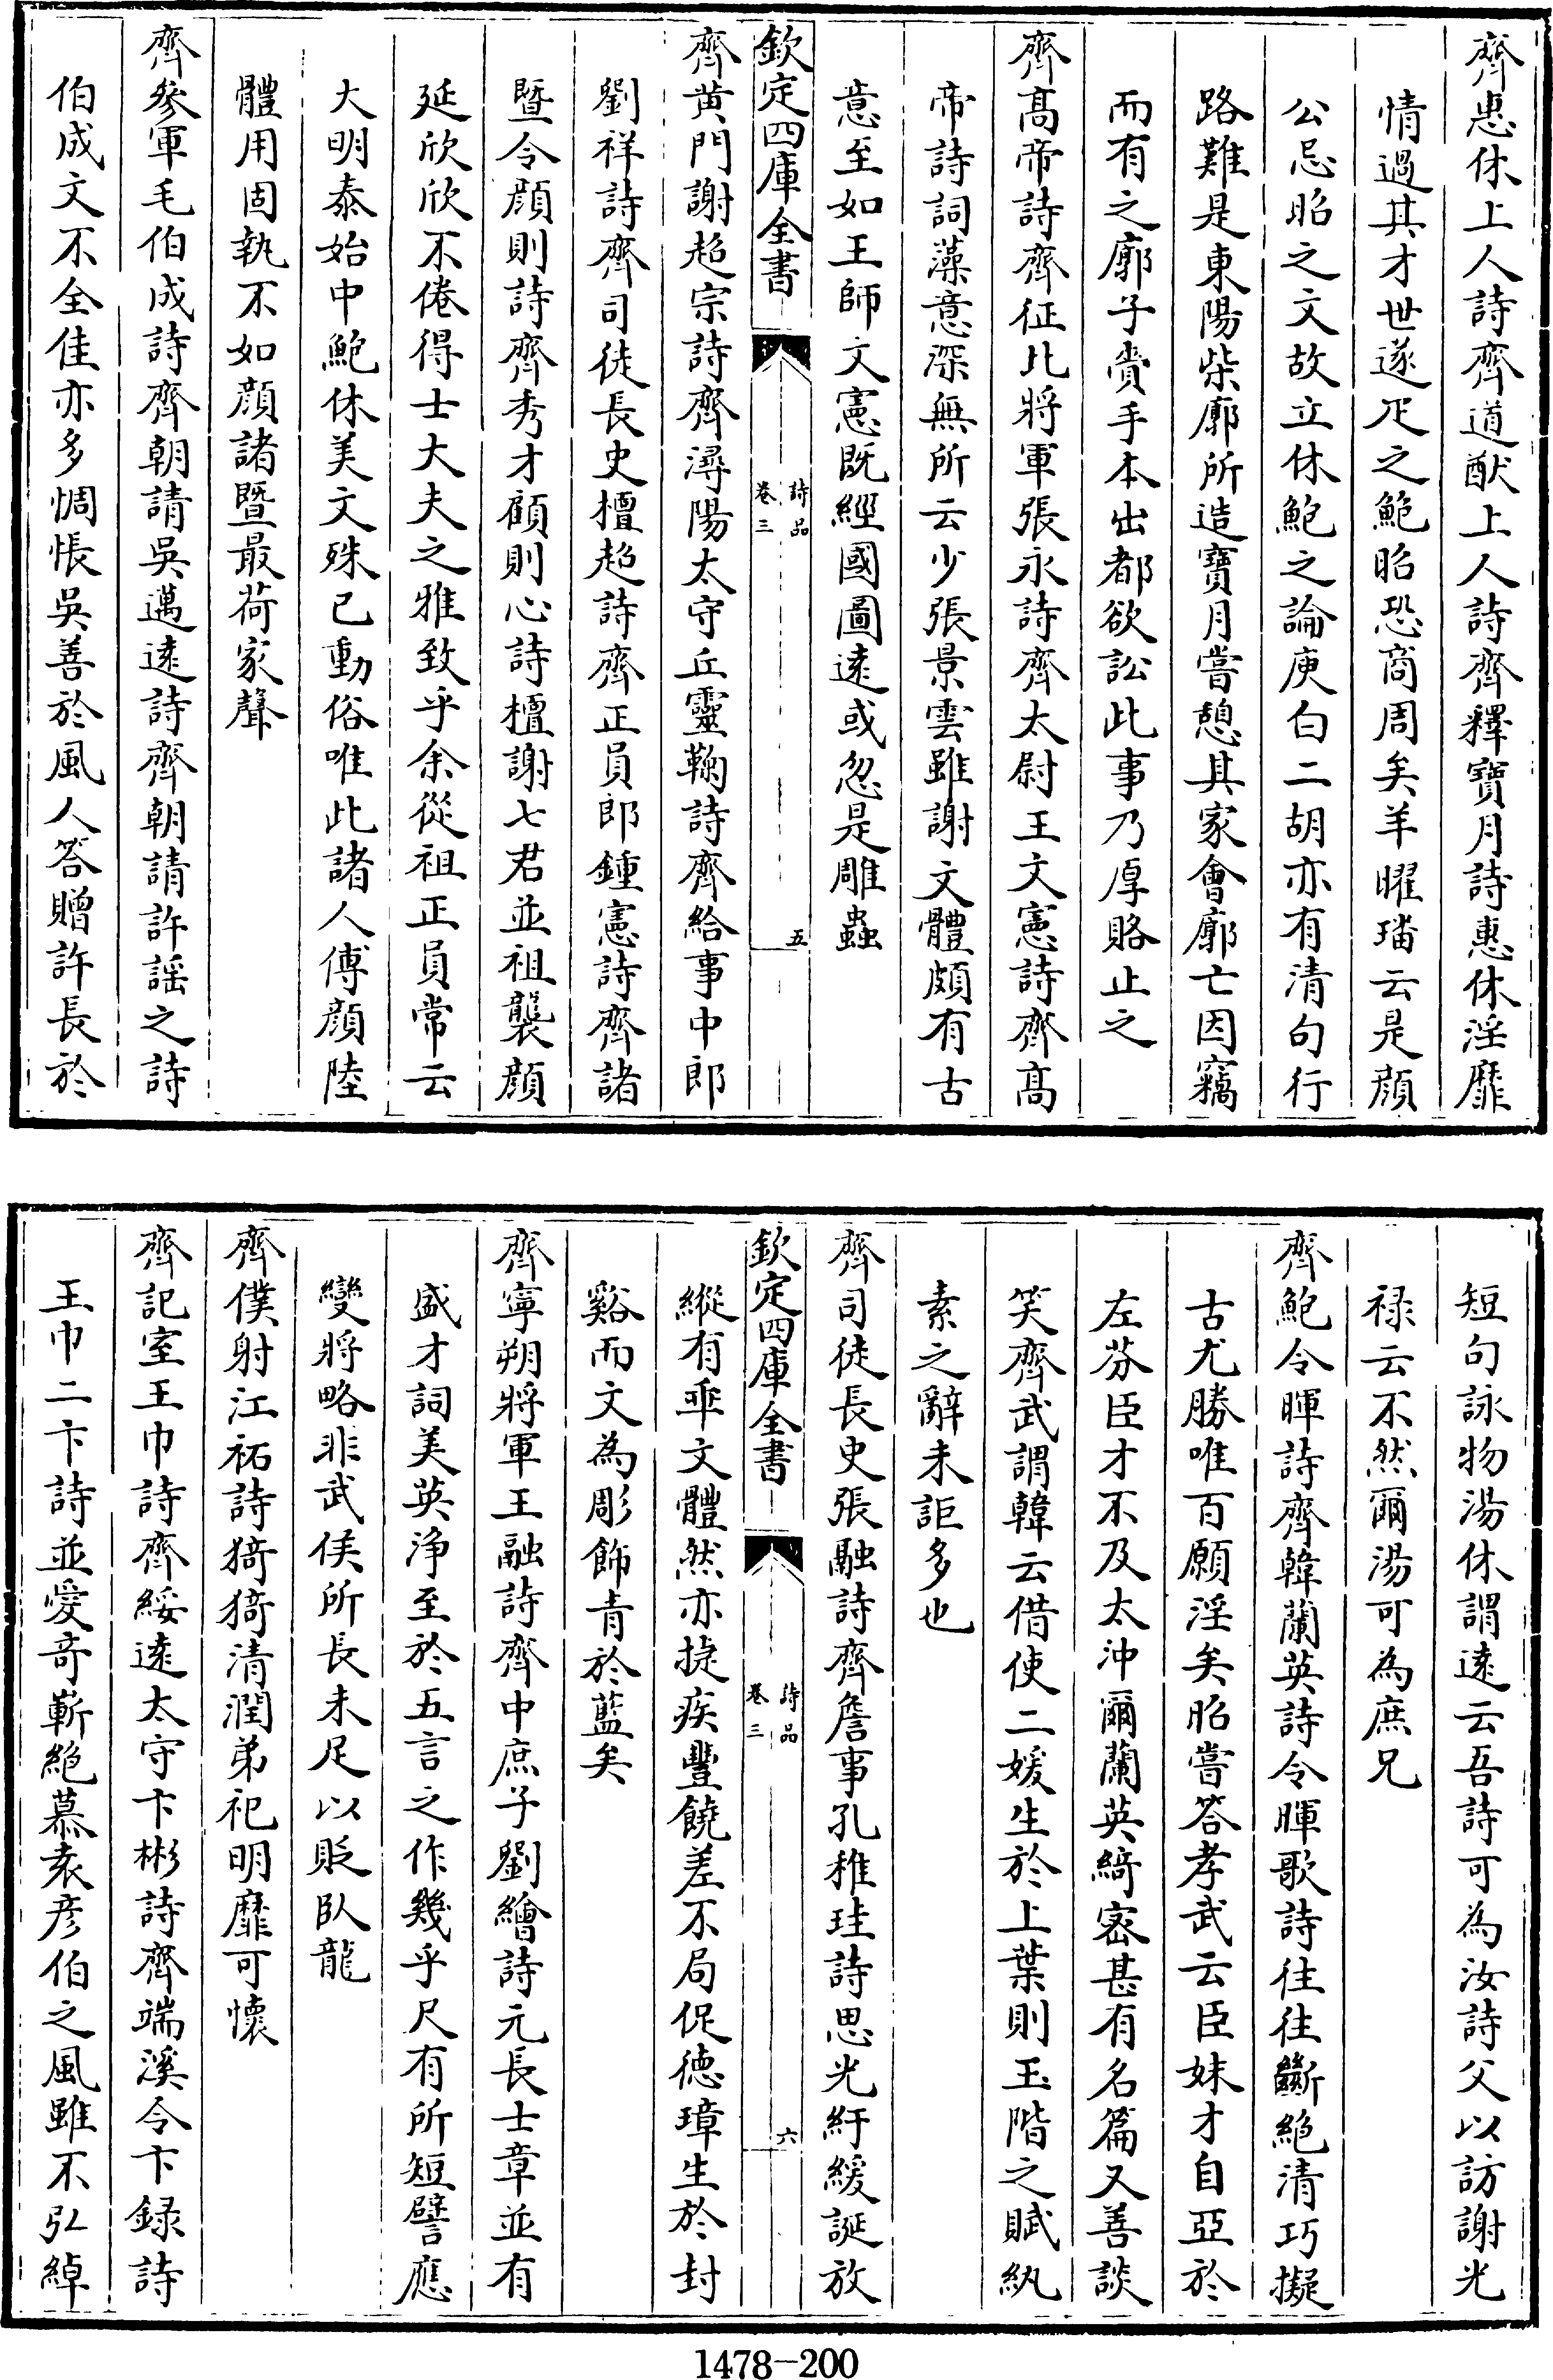 齊惠休上人詩齊道猷上人詩齊釋寶月詩惠休淫靡
情過其才世遂疋之鮑昭恐商周矣羊曜璠云是顔
公忌昭之文故立休鮑之論庾白二胡亦有清句行
路難是東陽柴廓所造寶月嘗憩其家會廓亡因竊
而有之廓子賫手本出都欲訟此事乃厚賂止之
齊髙帝詩齊征北將軍張永詩齊太尉王文憲詩齊髙
帝詩詞藻意深無所云少張景雲雖謝文體頗有古
意至如王師文憲既經國圖逺或忽是雕蟲
欽定四庫全書
詩品
卷三
五
齊黄門謝超宗詩齊潯陽太守丘靈鞠詩齊給事中郎
劉祥詩齊司徒長史檀超詩齊正員郎鍾憲詩齊諸
暨令顔則詩齊秀才顧則心詩檀謝七君並祖襲顔
延欣欣不倦得士大夫之雅致乎余從祖正員常云
大明泰始中鮑休美文殊已動俗唯此諸人傅顔陸
體用固執不如顔諸暨最荷家聲
齊參軍毛伯成詩齊朝請吳邁逺詩齊朝請許謡之詩
伯成文不全佳亦多惆悵吳善於風人答贈許長於
短句詠物湯休謂逺云吾詩可為汝詩父以訪謝光
禄云不然爾湯可為庶兄
齊鮑令暉詩齊韓蘭英詩令暉歌詩往往斷絶清巧擬
古尤勝唯百願淫矣昭嘗答孝武云臣妹才自亞於
左芬臣才不及太沖爾蘭英綺宻甚有名篇又善談
笑齊武謂韓云借使二媛生於上葉則玉階之賦紈
素之辭未詎多也
齊司徒長史張融詩齊詹事孔稚珪詩思光紆緩誕放
欽定四庫全書
詩品
卷三
六
縱有乖文體然亦捷疾豐饒差不局促德璋生於封
谿而文為彫飾青於藍矣
齊寧朔將軍王融詩齊中庶子劉繪詩元長士章並有
盛才詞美英浄至於五言之作幾乎尺有所短譬應
變將略非武侯所長未足以貶臥龍
齊僕射江祏詩猗猗清潤弟祀明靡可懷
齊記室王巾詩齊綏逺太守卞彬詩齊端溪令卞録詩
王巾二卞詩並愛奇嶄絶慕袁彦伯之風雖不弘綽
1478-200